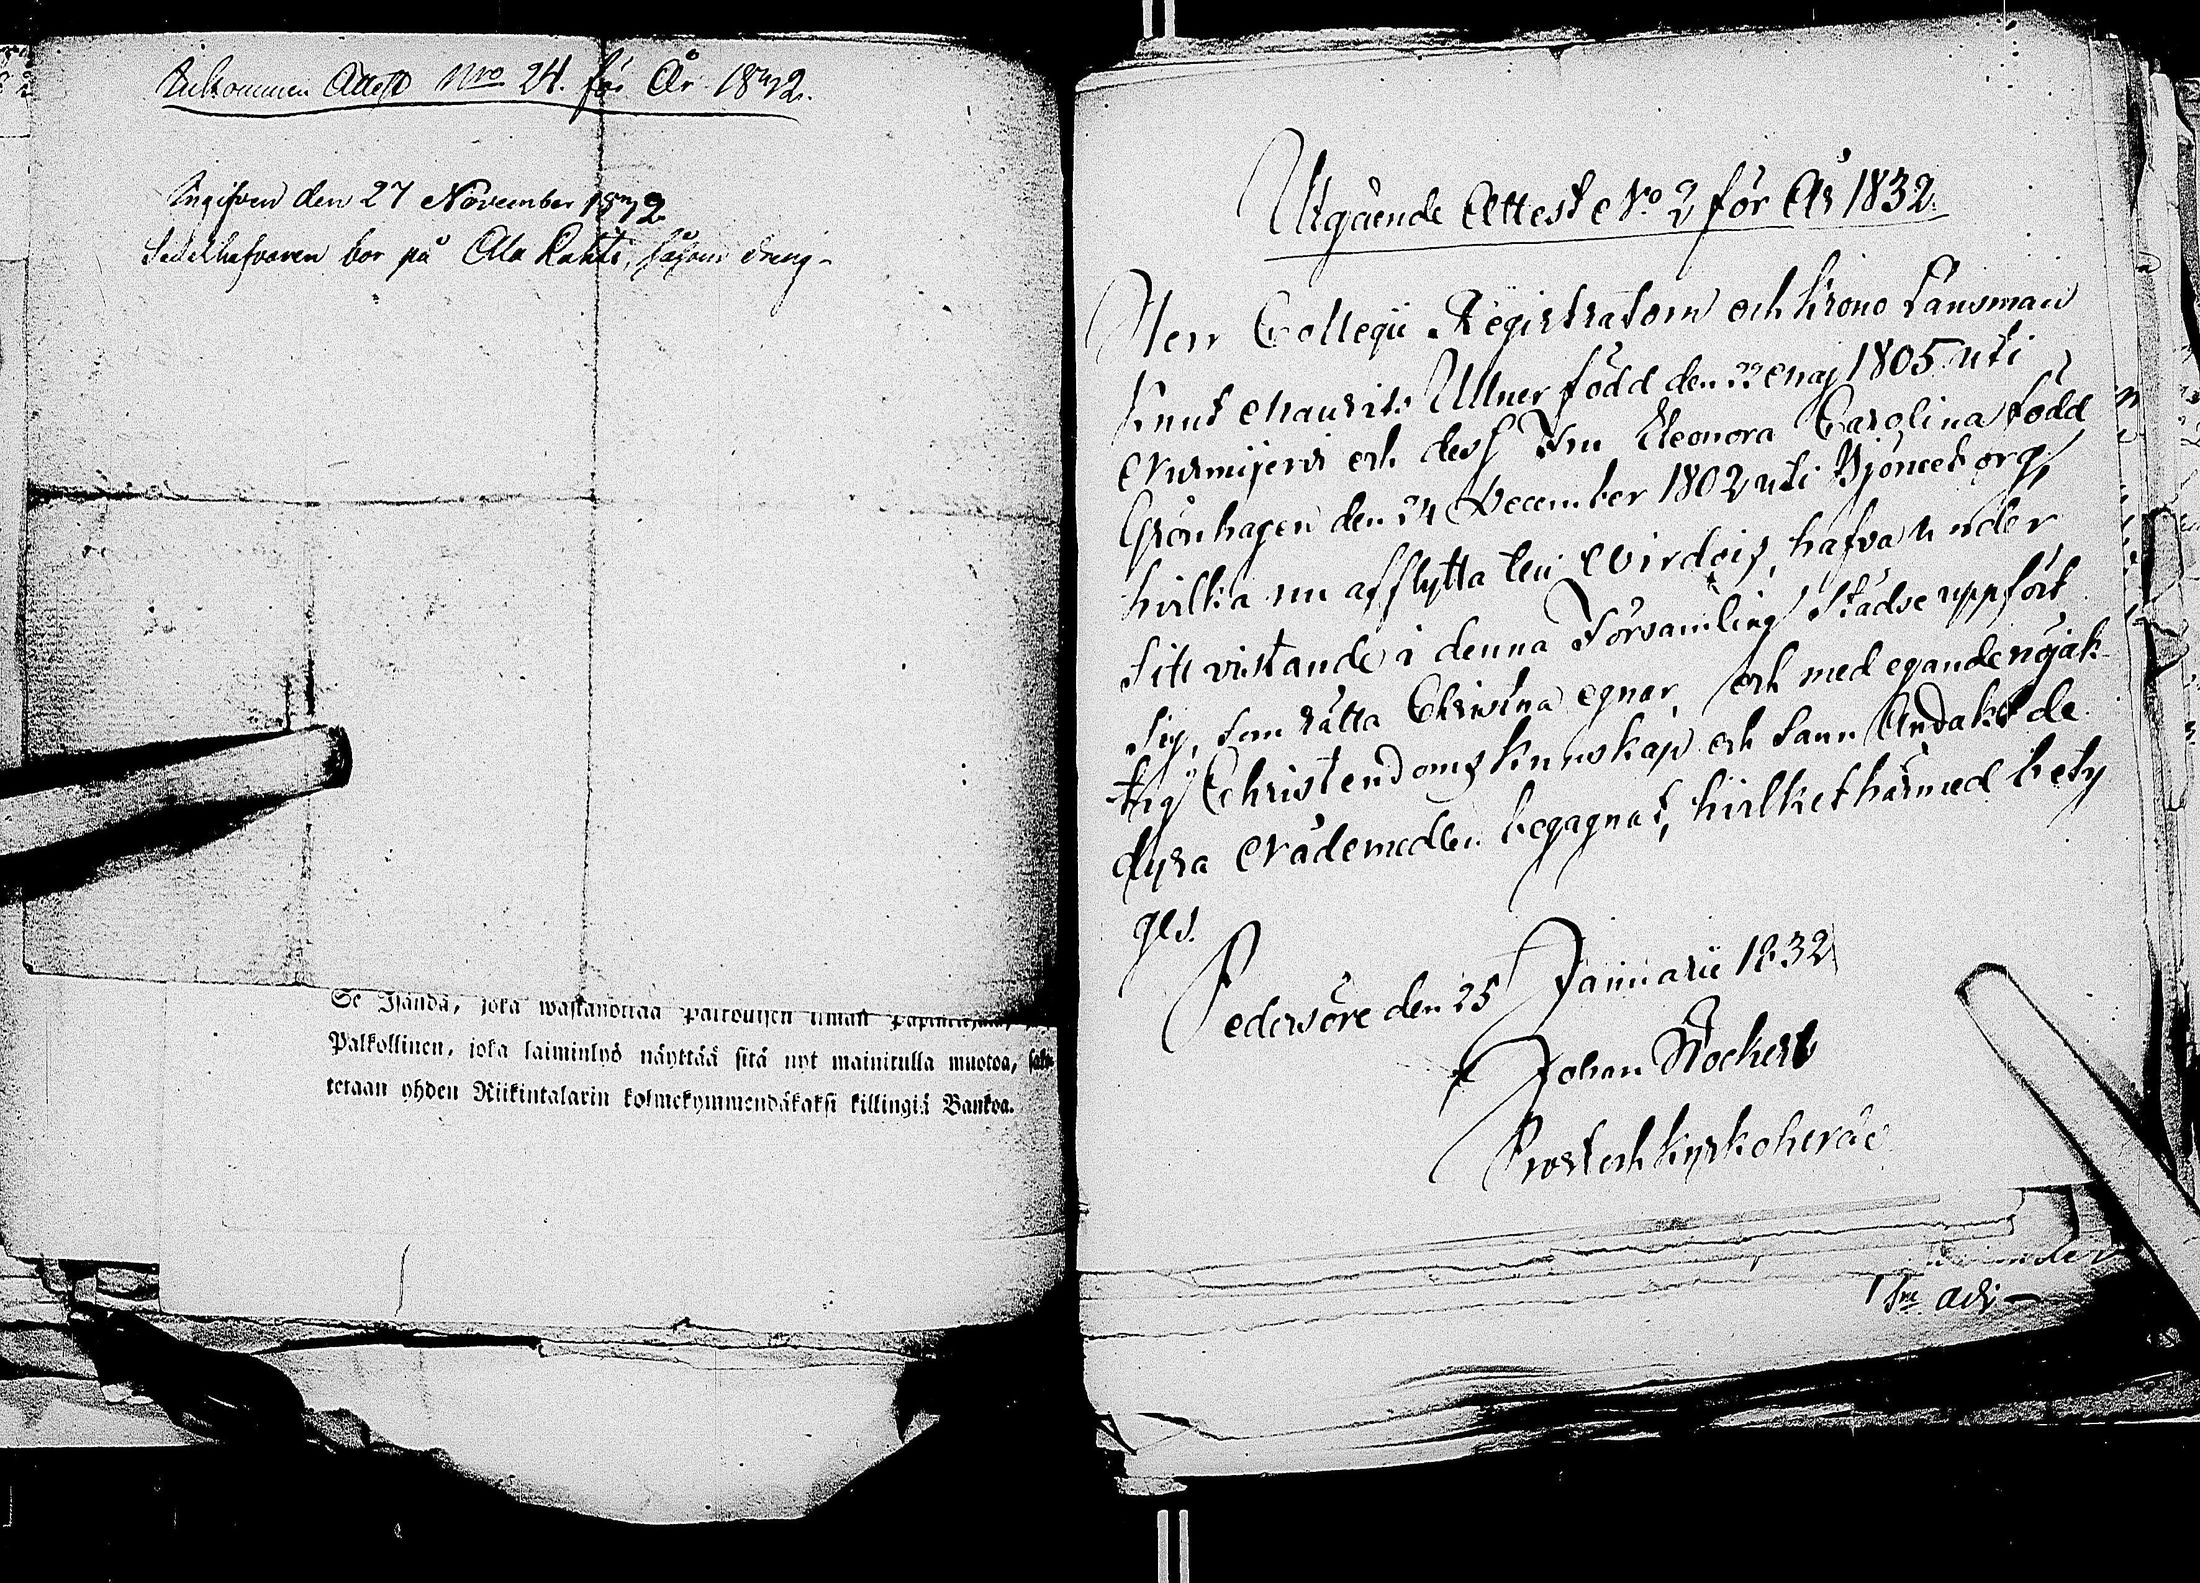 Inkommen Attest Nro 24. för År 1832.
Ingifven den 27 November 1832
Sedelhafvaren bor på Ala Rahko, såsom dräng
Se Isändä, joka wastanottaa palkollisen ilman
Palkollinen, joka laiminlyö näyttää sitä nyt mainitulla muotoa, sak-
tetaan yhden Riikintalarin kolmekymmendäkaksi killingiä Bankoa.
Utgående Attest No 2 för År 1832.
Herr Collegii Registratorn och Krono Länsman
Knut Maurits Ullner född den 22 Maj 1805 uti
och dess Fru Eleonora Carolina född
Grönhagen den 24 December 1802 uti Björneborg,
hvilka nu afflytta till hafva under
sitt vistande i denna Församling städse uppfört
sig, som rätta Christna egnar, och med egande nöjak-
tig Christendoms kunskap och sann Andakt de
dyra Nådemedlen begagnat, hvilket härmed bety
ges.
Pedersöre den 25 Januarii 1832
Johan Stockert
Prost och Kyrkoherde